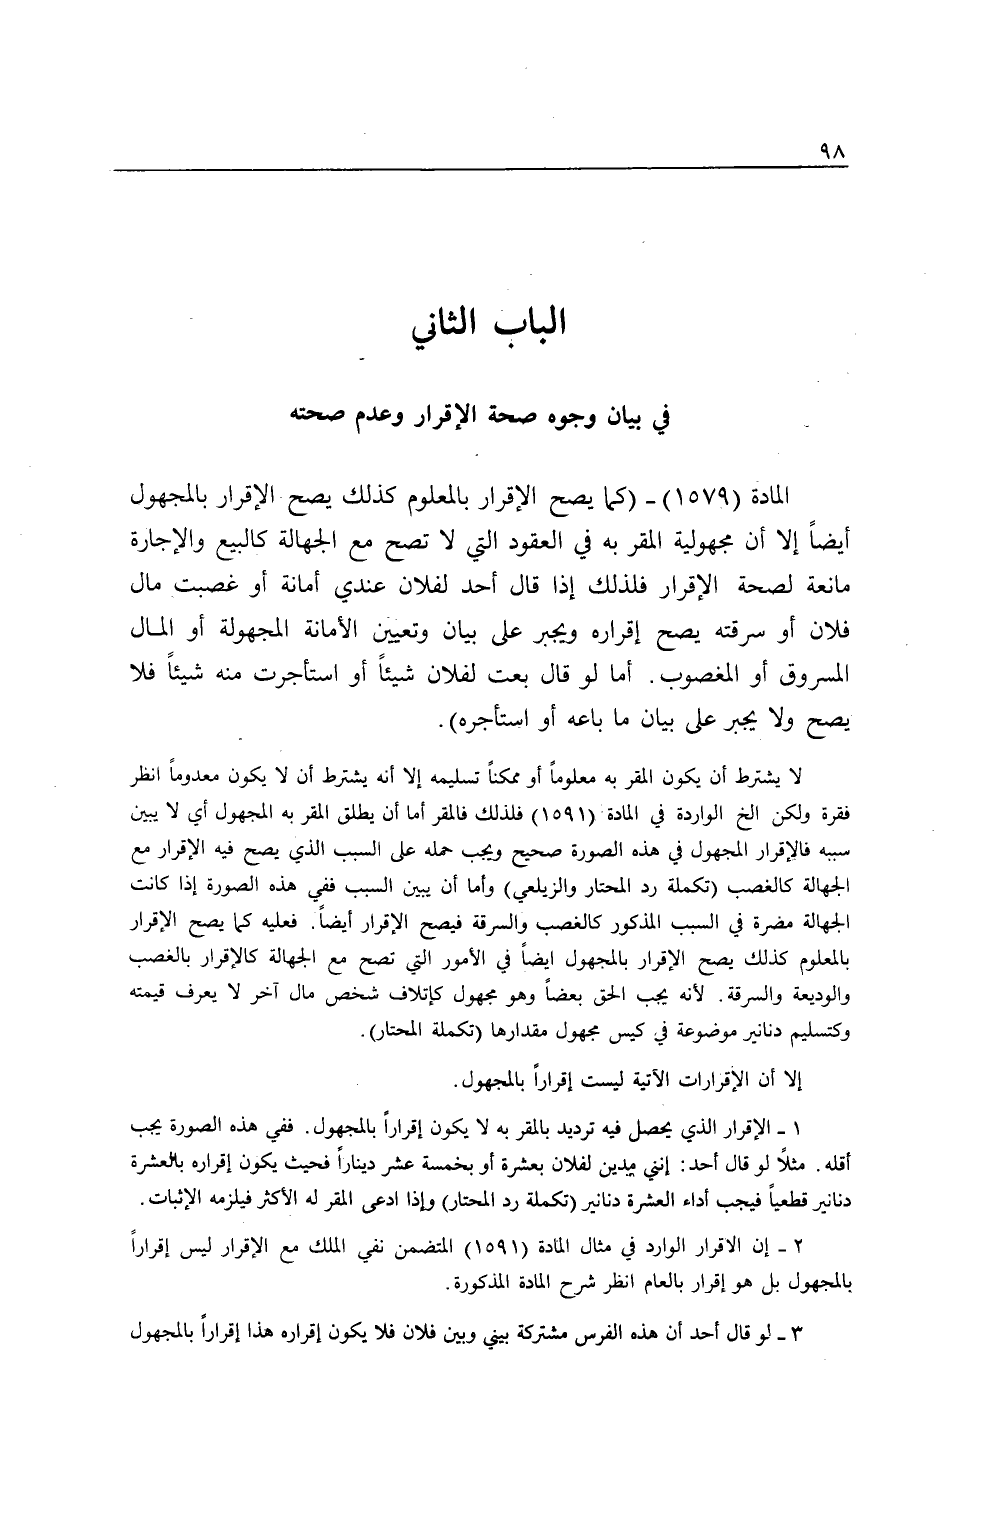 ٩٨
الباب الثاني
في بيان وجوه صحة الإقرار وعدم صحته
المادة (١٥٧٩) - (كما يصح الإقرار بالمعلوم كذلك يصح الإقرار بالمجهول
أيضاً إلا أن مجهولية المقر به في العقود التي لا تصح مع الجهالة كالبيع والإجارة
مانعة لصحة الإقرار فلذلك إذا قال أحد لفلان عندي أمانة أو غصبت مال
فلان أو سرقته يصح إقراره ويجبر على بيان وتعيين الأمانة المجهولة أو المال
المسروق أو المغصوب. أما لو قال بعت لفلان شيئاً أو استأجرت منه شيئاً فلا
يصح ولا يجبر على بيان ما باعه أو استأجره).
لا يشترط أن يكون المقر به معلوماً أو ممكناً تسليمه إلا أنه يشترط أن لا يكون معدوماً انظر
فقرة ولكن الخ الواردة في المادة (١٥٩١) فلذلك فالمقر أما أن يطلق المقر به المجهول أي لا يبين
سببه فالإقرار المجهول في هذه الصورة صحيح ويجب حمله على السبب الذي يصح فيه الإقرار مع
الجهالة كالغصب (تكملة رد المحتار والزيلعي) وأما أن يبين السبب ففي هذه الصورة إذا كانت
الجهالة مضرة في السبب المذكور كالغصب والسرقة فيصح الإقرار أيضاً. فعليه كما يصح الإقرار
بالمعلوم كذلك يصح الإقرار بالمجهول ايضاً في الأمور التي تصح مع الجهالة كالإقرار بالغصب
والوديعة والسرقة. لأنه يجب الحق بعضاً وهو مجهول كإتلاف شخص مال آخر لا يعرف قيمته
وكتسليم دنانير موضوعة في كيس مجهول مقدارها (تكملة المحتار).
إلا أن الإقرارات الآتية ليست إقراراً بالمجهول.
١ - الإقرار الذي يحصل فيه ترديد بالمقر به لا يكون إقراراً بالمجهول. ففي هذه الصورة يجب
أقله. مثلاً لو قال أحد: إنني مدين لفلان بعشرة أو بخمسة عشر ديناراً فحيث يكون إقراره بالعشرة
دنانير قطعياً فيجب أداء العشرة دنانير (تكملة رد المحتار) وإذا ادعى المقر له الأكثر فيلزمه الإثبات.
٢ - إن الاقرار الوارد في مثال المادة (١٥٩١) المتضمن نفي الملك مع الإقرار ليس إقراراً
بالمجهول بل هو إقرار بالعام انظر شرح المادة المذكورة.
٣ - لو قال أحد أن هذه الفرس مشتركة بيني وبين فلان فلا يكون إقراره هذا إقراراً بالمجهول